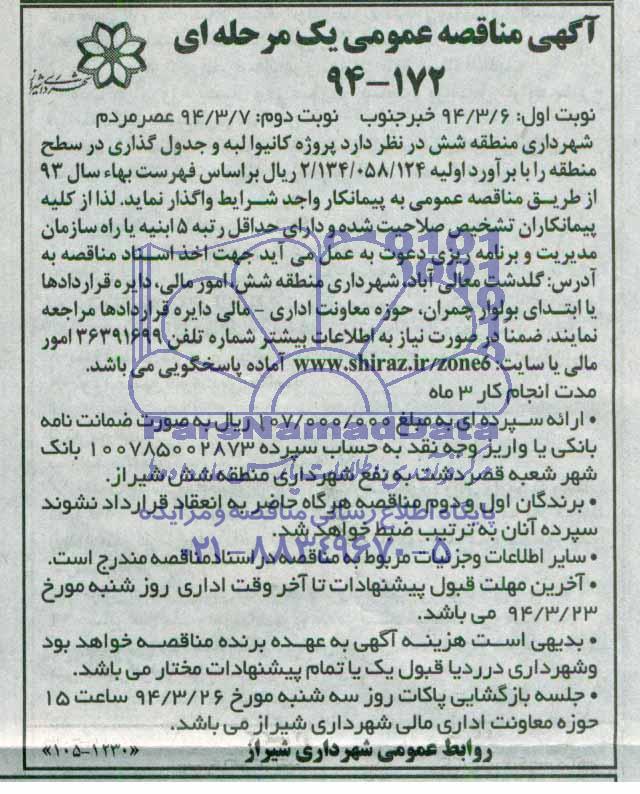 آگهی مناقصه عمومی یک مرحله ای
۹۴-۱۷۲
شهرداری شیراز
نوبت اول: ۹۴/۳/۶ خبرجنوب نوبت دوم: ۹۴/۳/۷ عصرمردم
شهرداری منطقه شش در نظر دارد پروژه کانیوا لبه و جدول گذاری در سطح
منطقه را با برآورد اولیه ۲/۱۳۴/۰۵۸/۱۲۴ ریال براساس فهرست بهاء سال ۹۳
از طریق مناقصه عمومی به پیمانکار واجد شرایط واگذار نماید. لذا از کلیه
پیمانکاران تشخیص صلاحیت شده و دارای حداقل رتبه ۵ ابنیه یا راه سازمان
مدیریت و برنامه ریزی دعوت به عمل می آید جهت اخذ اسناد مناقصه به
آدرس: گلدشت معالی آباد، شهرداری منطقه شش، امور مالی، دایره قراردادها
یا ابتدای بولوار چمران، حوزه معاونت اداری - مالی دایره قراردادها مراجعه
نمایند. ضمنا در صورت نیاز به اطلاعات بیشتر شماره تلفن ۳۶۳۹۱۶۹۹ امور
مالی یا سایت: www.shiraz.ir/zone6 آماده پاسخگویی می باشد.
مدت انجام کار ۳ ماه
• ارائه سپرده ای به مبلغ ۱۰۷/۰۰۰/۰۰۰ ریال به صورت ضمانت نامه
بانکی یا واریز وجه نقد به حساب سپرده ۱۰۰۷۸۵۰۰۲۸۷۳ بانک
شهر شعبه قصردشت به نفع شهرداری منطقه شش شیراز.
• برندگان اول و دوم مناقصه هرگاه حاضر به انعقاد قرارداد نشوند
سپرده آنان به ترتیب ضبط خواهد شد.
• سایر اطلاعات وجزئیات مربوط به مناقصه در اسنادمناقصه مندرج است.
• آخرین مهلت قبول پیشنهادات تا آخر وقت اداری روز شنبه مورخ
۹۴/۳/۲۳ می باشد.
• بدیهی است هزینه آگهی به عهده برنده مناقصه خواهد بود
وشهرداری درردیا قبول یک یا تمام پیشنهادات مختار می باشد.
• جلسه بازگشایی پاکات روز سه شنبه مورخ ۹۴/۳/۲۶ ساعت ۱۵
حوزه معاونت اداری مالی شهرداری شیراز می باشد.
روابط عمومی شهرداری شیراز
«۱۰۵-۱۲۳۰»
ParsNamadData
پایگاه اطلاع رسانی مناقصه و مزایده
۰۲۱-۸۸۳۴۹۶۷۰-۵